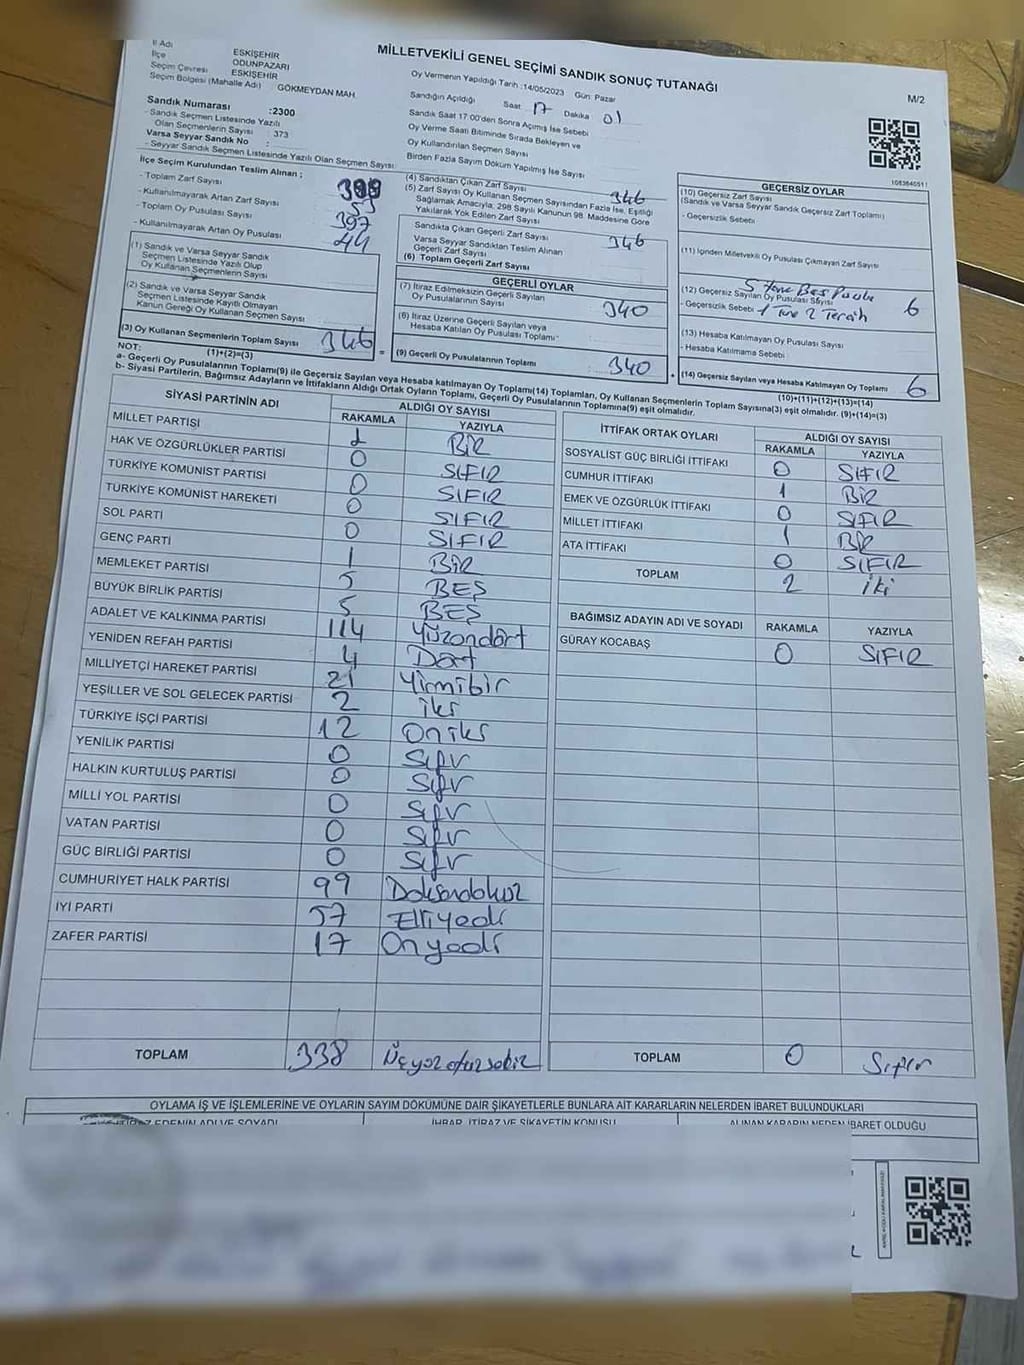 MİLLETVEKİLİ GENEL SEÇİMİ SANDIK SONUÇ TUTANAĞI
M/2
İl Adı ESKİŞEHİR
İlçe ODUNPAZARI
Seçim Çevresi ESKİŞEHİR
Seçim Bölgesi (Mahalle Adı) GÖKMEYDAN MAH.
Sandık Numarası :2300
- Sandık Seçmen Listesinde Yazılı
Olan Seçmenlerin Sayısı : 373
Varsa Seyyar Sandık No :
- Seyyar Sandık Seçmen Listesinde Yazılı Olan Seçmen Sayısı
Oy Vermenin Yapıldığı Tarih :14/05/2023 Gün: Pazar
Sandığın Açıldığı Saat 17 Dakika 01
Sandık Saat 17:00'den Sonra Açımış İse Sebebi
Oy Verme Saati Bitiminde Sırada Bekleyen ve
Oy Kullandırılan Seçmen Sayısı
Birden Fazla Sayım Döküm Yapılmış İse Sayısı
İlçe Seçim Kurulundan Teslim Alınan ;
- Toplam Zarf Sayısı
- Kullanılmayarak Artan Zarf Sayısı 53
- Toplam Oy Pusulası Sayısı 397
- Kullanılmayarak Artan Oy Pusulası 44
(1) Sandık ve Varsa Seyyar Sandık
Seçmen Listesinde Yazılı Olup
Oy Kullanan Seçmenlerin Sayısı
(2) Sandık ve Varsa Seyyar Sandık
Seçmen Listesinde Kayıtlı Olmayan
Kanun Gereği Oy Kullanan Seçmen Sayısı
(3) Oy Kullanan Seçmenlerin Toplam Sayısı 346
(1)+(2)=(3)
(4) Sandıktan Çıkan Zarf Sayısı 346
(5) Zarf Sayısı Oy Kullanan Seçmen Sayısından Fazla İse, Eşitliği
Sağlamak Amacıyla, 298 Sayılı Kanunun 98. Maddesine Göre
Yakılarak Yok Edilen Zarf Sayısı
Sandıkta Çıkan Geçerli Zarf Sayısı 346
Varsa Seyyar Sandıktan Teslim Alınan
Geçerli Zarf Sayısı
(6) Toplam Geçerli Zarf Sayısı
GEÇERLİ OYLAR
(7) İtiraz Edilmeksizin Geçerli Sayılan
Oy Pusulalarının Sayısı 340
(8) İtiraz Üzerine Geçerli Sayılan veya
Hesaba Katılan Oy Pusulası Toplamı
= (9) Geçerli Oy Pusulalarının Toplamı : 340
GEÇERSİZ OYLAR
(10) Geçersiz Zarf Sayısı
(Sandık ve Varsa Seyyar Sandık Geçersiz Zarf Toplamı)
- Geçersizlik Sebebi
(11) İçinden Milletvekili Oy Pusulası Çıkmayan Zarf Sayısı
(12) Geçersiz Sayılan Oy Pusulası Sayısı 6
- Geçersizlik Sebebi 1 Tane 2 Tercih
(13) Hesaba Katılmayan Oy Pusulası Sayısı
- Hesaba Katılmama Sebebi
+ (14) Geçersiz Sayılan veya Hesaba Katılmayan Oy Toplamı 6
(10)+(11)+(12)+(13)=(14)
NOT:
a- Geçerli Oy Pusulalarının Toplamı(9) ile Geçersiz Sayılan veya Hesaba katılmayan Oy Toplamı(14) Toplamları, Oy Kullanan Seçmenlerin Toplam Sayısına(3) eşit olmalıdır. (9)+(14)=(3)
b- Siyasi Partilerin, Bağımsız Adayların ve İttifakların Aldığı Ortak Oyların Toplamı, Geçerli Oy Pusulalarının Toplamına(9) eşit olmalıdır.
SİYASİ PARTİNİN ADI ALDIĞI OY SAYISI
RAKAMLA YAZIYLA
MİLLET PARTİSİ 1 BİR
HAK VE ÖZGÜRLÜKLER PARTİSİ 0 SIFIR
TÜRKİYE KOMÜNİST PARTİSİ 0 SIFIR
TÜRKİYE KOMÜNİST HAREKETİ 0 SIFIR
SOL PARTİ 0 SIFIR
GENÇ PARTİ 1 BİR
MEMLEKET PARTİSİ 5 BEŞ
BÜYÜK BİRLİK PARTİSİ 5 BEŞ
ADALET VE KALKINMA PARTİSİ 114 Yüzondört
YENİDEN REFAH PARTİSİ 4 Dört
MİLLİYETÇİ HAREKET PARTİSİ 21 Yirmibir
YEŞİLLER VE SOL GELECEK PARTİSİ 2 iki
TÜRKİYE İŞÇİ PARTİSİ 12 Oniki
YENİLİK PARTİSİ 0 Sıfır
HALKIN KURTULUŞ PARTİSİ 0 Sıfır
MİLLİ YOL PARTİSİ 0 Sıfır
VATAN PARTİSİ 0 Sıfır
GÜÇ BİRLİĞİ PARTİSİ 0 Sıfır
CUMHURİYET HALK PARTİSİ 99 Doksandokuz
İYİ PARTİ 57 Elliyedi
ZAFER PARTİSİ 17 Onyedi
TOPLAM 338 Üçyüzotuzsekiz
İTTİFAK ORTAK OYLARI ALDIĞI OY SAYISI
RAKAMLA YAZIYLA
SOSYALİST GÜÇ BİRLİĞİ İTTİFAKI 0 SIFIR
CUMHUR İTTİFAKI 1 BİR
EMEK VE ÖZGÜRLÜK İTTİFAKI 0 SIFIR
MİLLET İTTİFAKI 1 BİR
ATA İTTİFAKI 0 SIFIR
TOPLAM 2 iki
BAĞIMSIZ ADAYIN ADI VE SOYADI RAKAMLA YAZIYLA
GÜRAY KOCABAŞ 0 SIFIR
TOPLAM 0 Sıfır
OYLAMA İŞ VE İŞLEMLERİNE VE OYLARIN SAYIM DÖKÜMÜNE DAİR ŞİKAYETLERLE BUNLARA AİT KARARLARIN NELERDEN İBARET BULUNDUKLARI
EDENİN ADI VE SOYADI İHBAR, İTİRAZ VE ŞİKAYETİN KONUSU ALINAN KARARIN NEDEN İBARET OLDUĞU